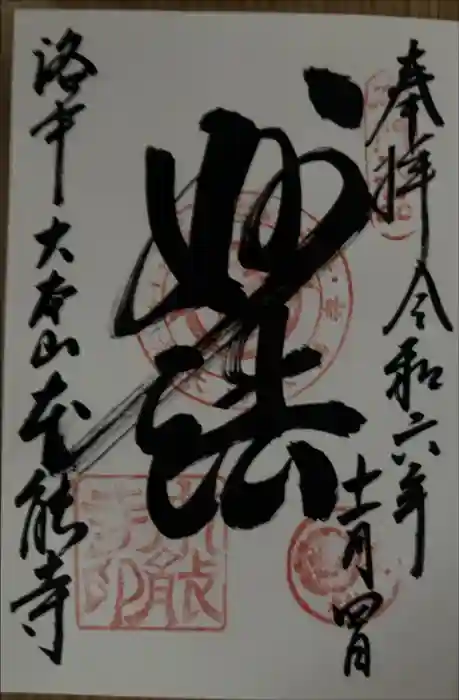 奉拝 令和六年
十一月四日
妙法
洛中 大本山 本能寺
本能寺印